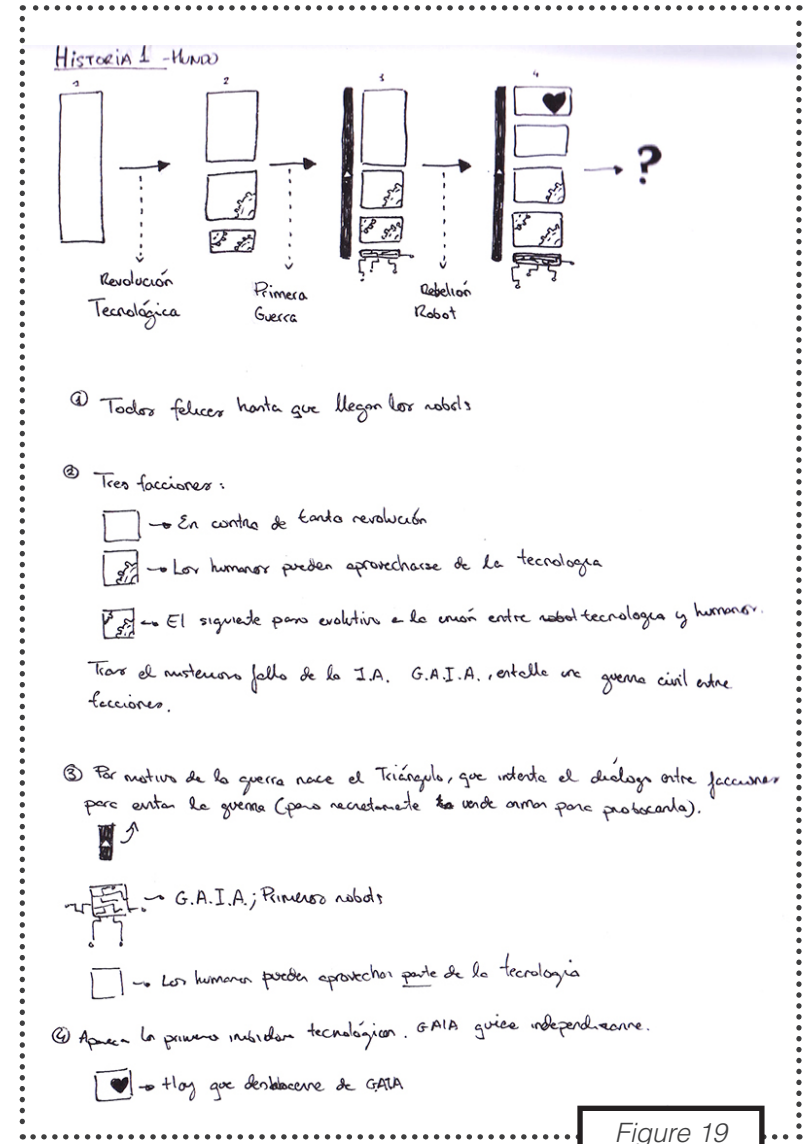 HISTORIA 1 - MUNDO
1 2 3 4
?
Revolución
Tecnológica
Primera
Guerra
Rebelión
Robot
① Todos felices hasta que llegan los robots
② Tres facciones:
→ En contra de tanta revolución
→ Los humanos pueden aprovecharse de la tecnología
→ El siguiente paso evolutivo e la unión entre tecnología y humanos.
Tras el misterioso fallo de la I.A. G.A.I.A., estalla una guerra civil entre
facciones.
③ Por motivo de la guerra nace el Triángulo, que intenta el diálogo entre facciones
para evitar la guerra (pero secretamente vende armas para probocarla).
→ G.A.I.A.; Primeros robots
→ Los humanos pueden aprovechar parte de la tecnología
④ tecnológicos. GAIA quiere independizarse.
→ Hay que deshacerse de GAIA
Figure 19